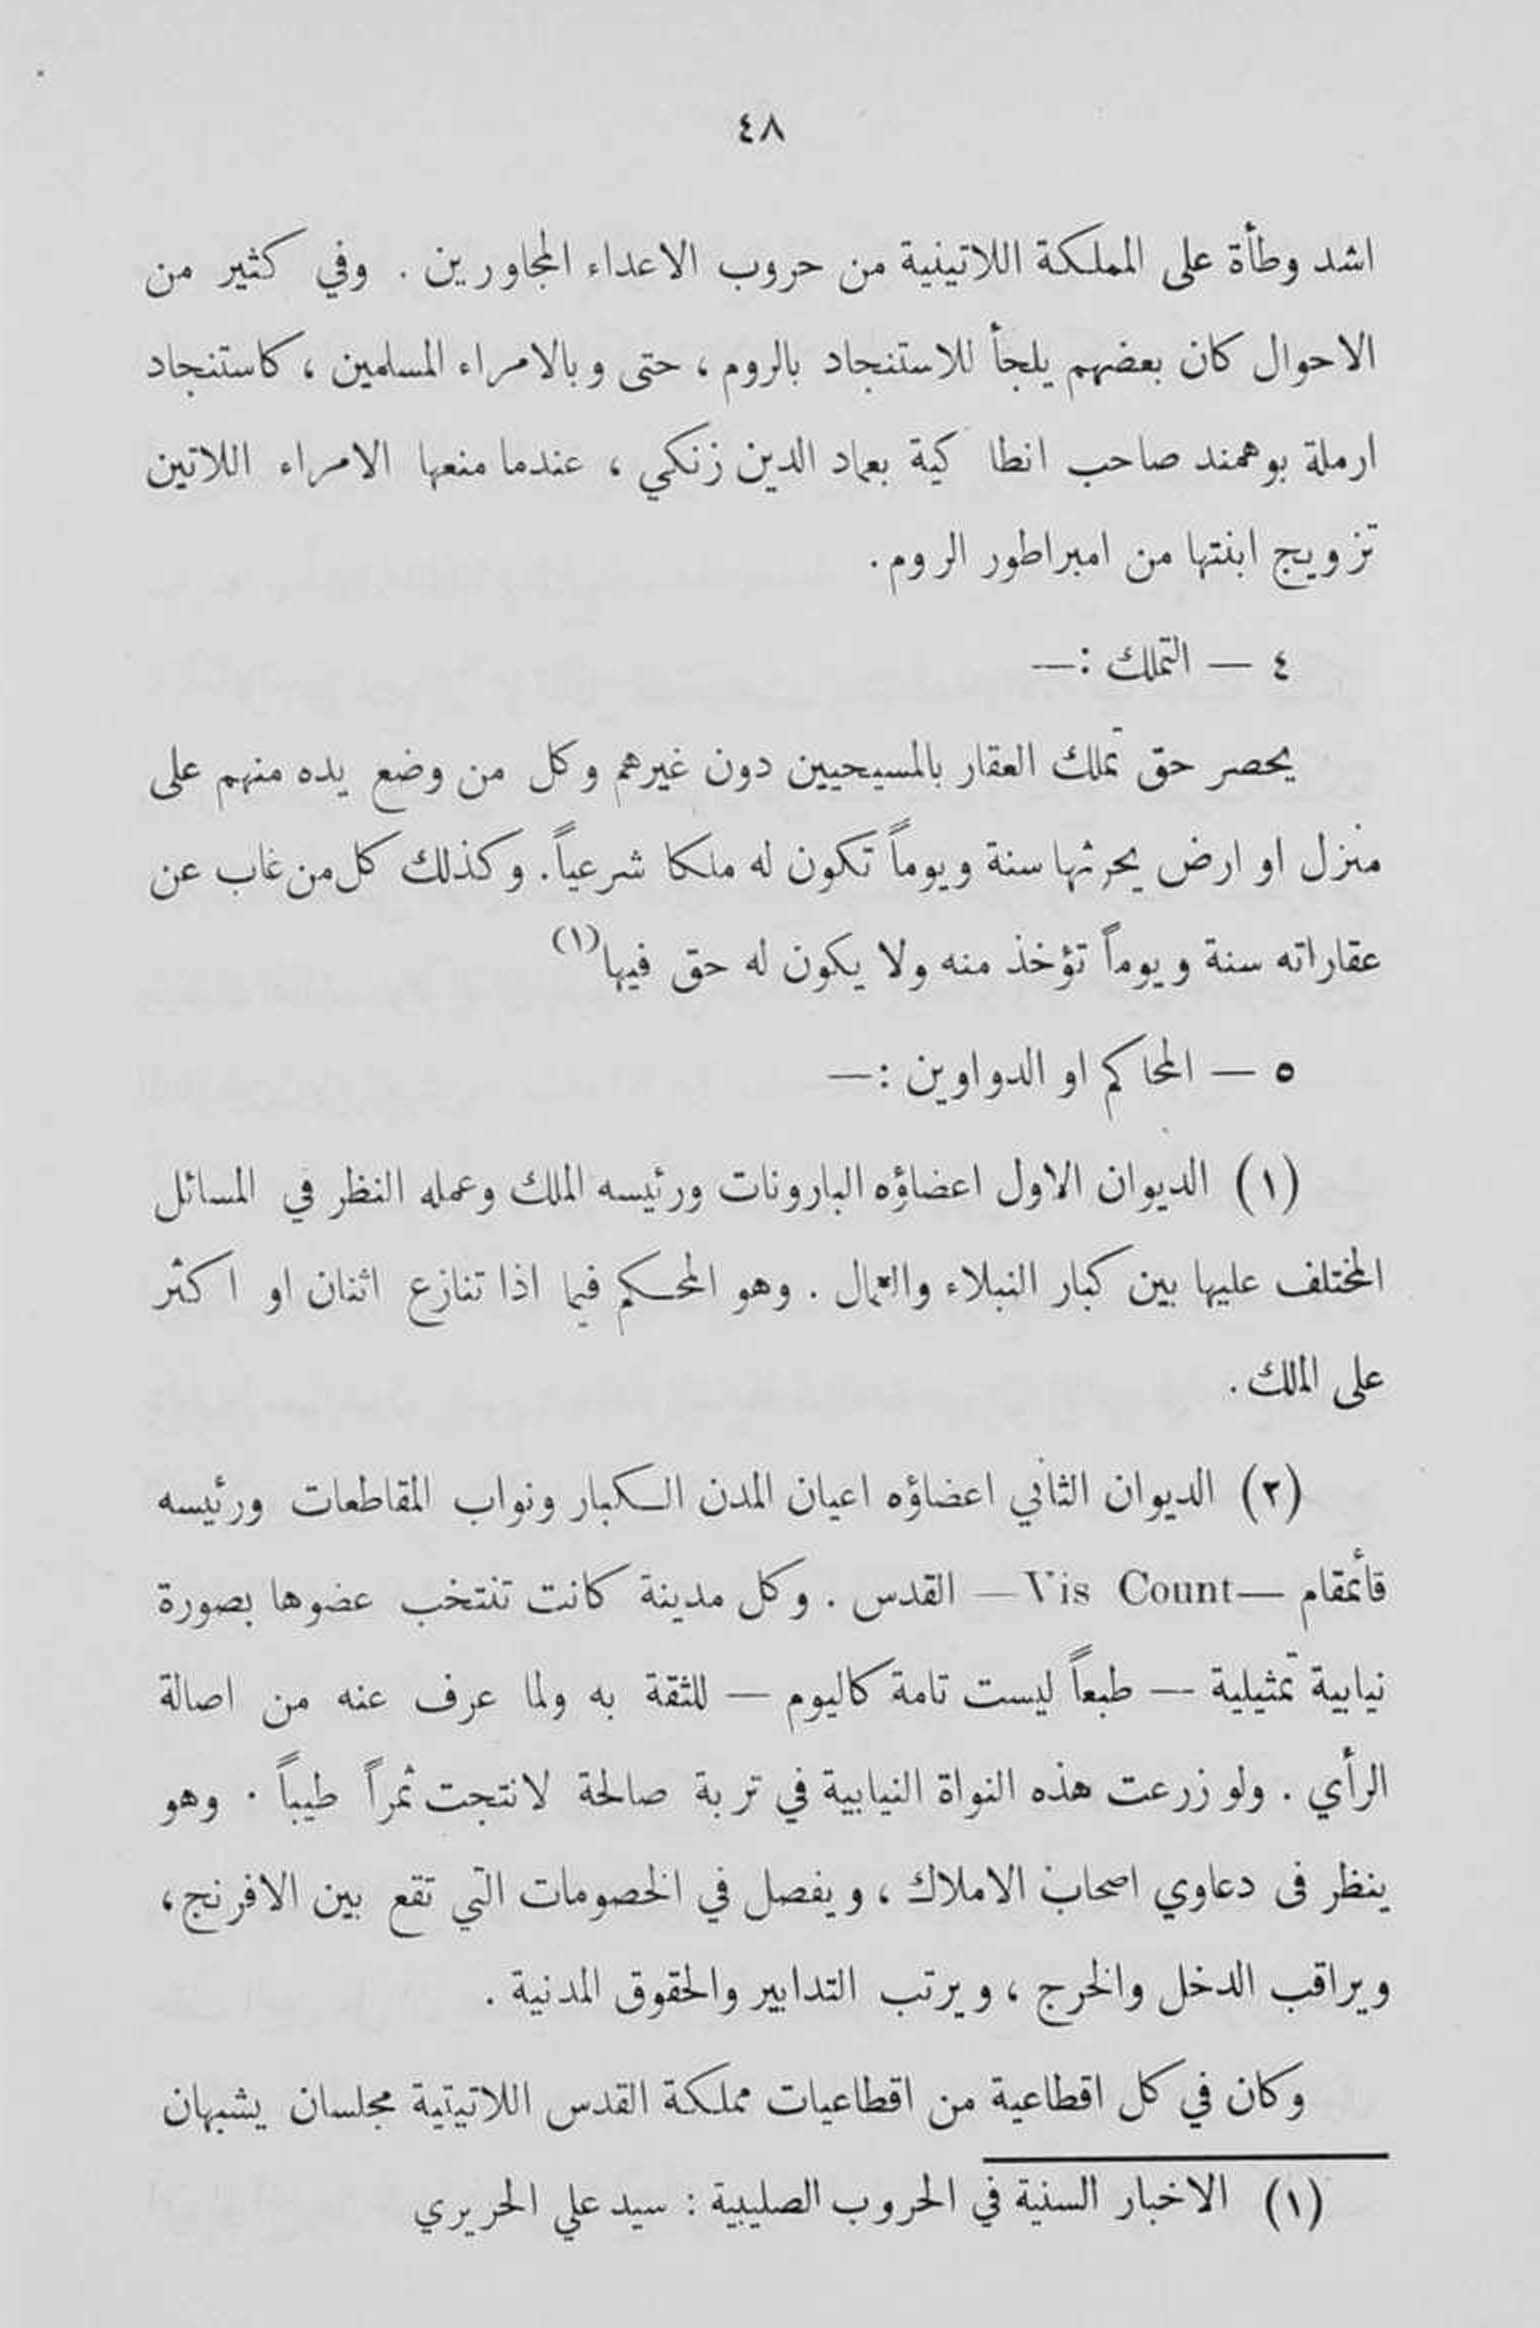 ٤٨
اشد وطأة على المملكة اللاتينية من حروب الاعداء المجاورين . وفي كثير من
الاحوال كان بعضهم يلجأ للاستنجاد بالروم ، حتى وبالامراء المسلمين ، كاستنجاد
ارملة بوهمند صاحب انطا كية بعماد الدين زنكي ، عندما منعها الامراء اللاتين
تزويج ابنتها من امبراطور الروم .
٤ — التملك : —
يحصر حق تملك العقار بالمسيحيين دون غيرهم وكل من وضع يده منهم على
منزل او ارض يحرثها سنة ويوماً تكون له ملكا شرعياً . وكذلك كل من غاب عن
عقاراته سنة ويوماً تؤخذ منه ولا يكون له حق فيها (١)
٥ — المحاكم او الدواوين : —
(١) الديوان الاول اعضاؤه البارونات ورئيسه الملك وعمله النظر في المسائل
المختلف عليها بين كبار النبلاء والعمال . وهو المحكم فيما اذا تنازع اثنان او اكثر
على الملك .
(٢) الديوان الثاني اعضاؤه اعيان المدن الكبار ونواب المقاطعات ورئيسه
قأئمقام —Vis Count— القدس . وكل مدينة كانت تنتخب عضوها بصورة
نيابية تمثيلية — طبعاً ليست تامة كاليوم — للثقة به ولما عرف عنه من اصالة
الرأي . ولو زرعت هذه النواة النيابية في تربة صالحة لانتجت ثمراً طيباً . وهو
ينظر فى دعاوي اصحاب الاملاك ، ويفصل في الخصومات التي تقع بين الافرنج ،
ويراقب الدخل والخرج ، ويرتب التدابير والحقوق المدنية .
وكان في كل اقطاعية من اقطاعيات مملكة القدس اللاتيتية مجلسان يشبهان
(١) الاخبار السنية في الحروب الصليبية : سيد علي الحريري